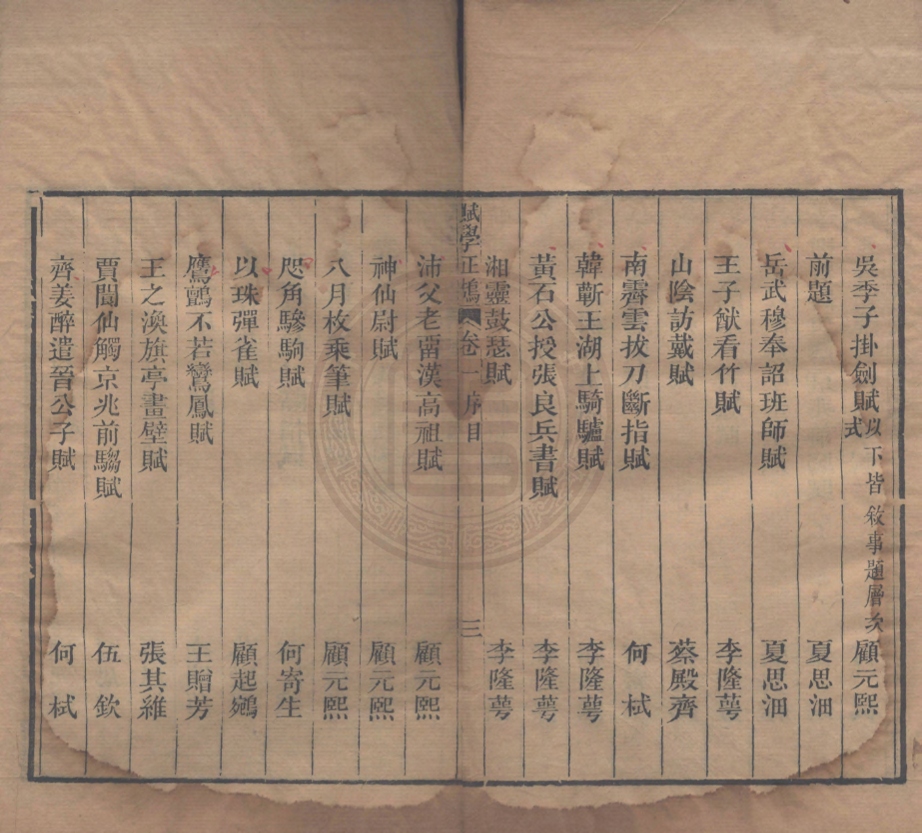 吳季子掛劍賦 以下皆敘事題層次式 顧元熙
前題 夏思沺
岳武穆奉詔班師賦 夏思沺
王子猷看竹賦 李隆萼
山陰訪戴賦 蔡殿齊
南霽雲拔刀斷指賦 何栻
韓蘄王湖上騎驢賦 李隆萼
黃石公授張良兵書賦 李隆萼
湘靈鼓瑟賦 李隆萼
賦學正鵠 卷一 序目 三
沛父老留漢高祖賦 顧元熙
神仙尉賦 顧元熙
八月枚乘筆賦 顧元熙
咫角驂駒賦 何寄生
以珠彈雀賦 顧起鵷
鷹鸇不若鸞鳳賦 王贈芳
王之渙旗亭畫壁賦 張其維
賈閬仙觸京兆前騶賦 伍欽
齊姜醉遣晉公子賦 何栻